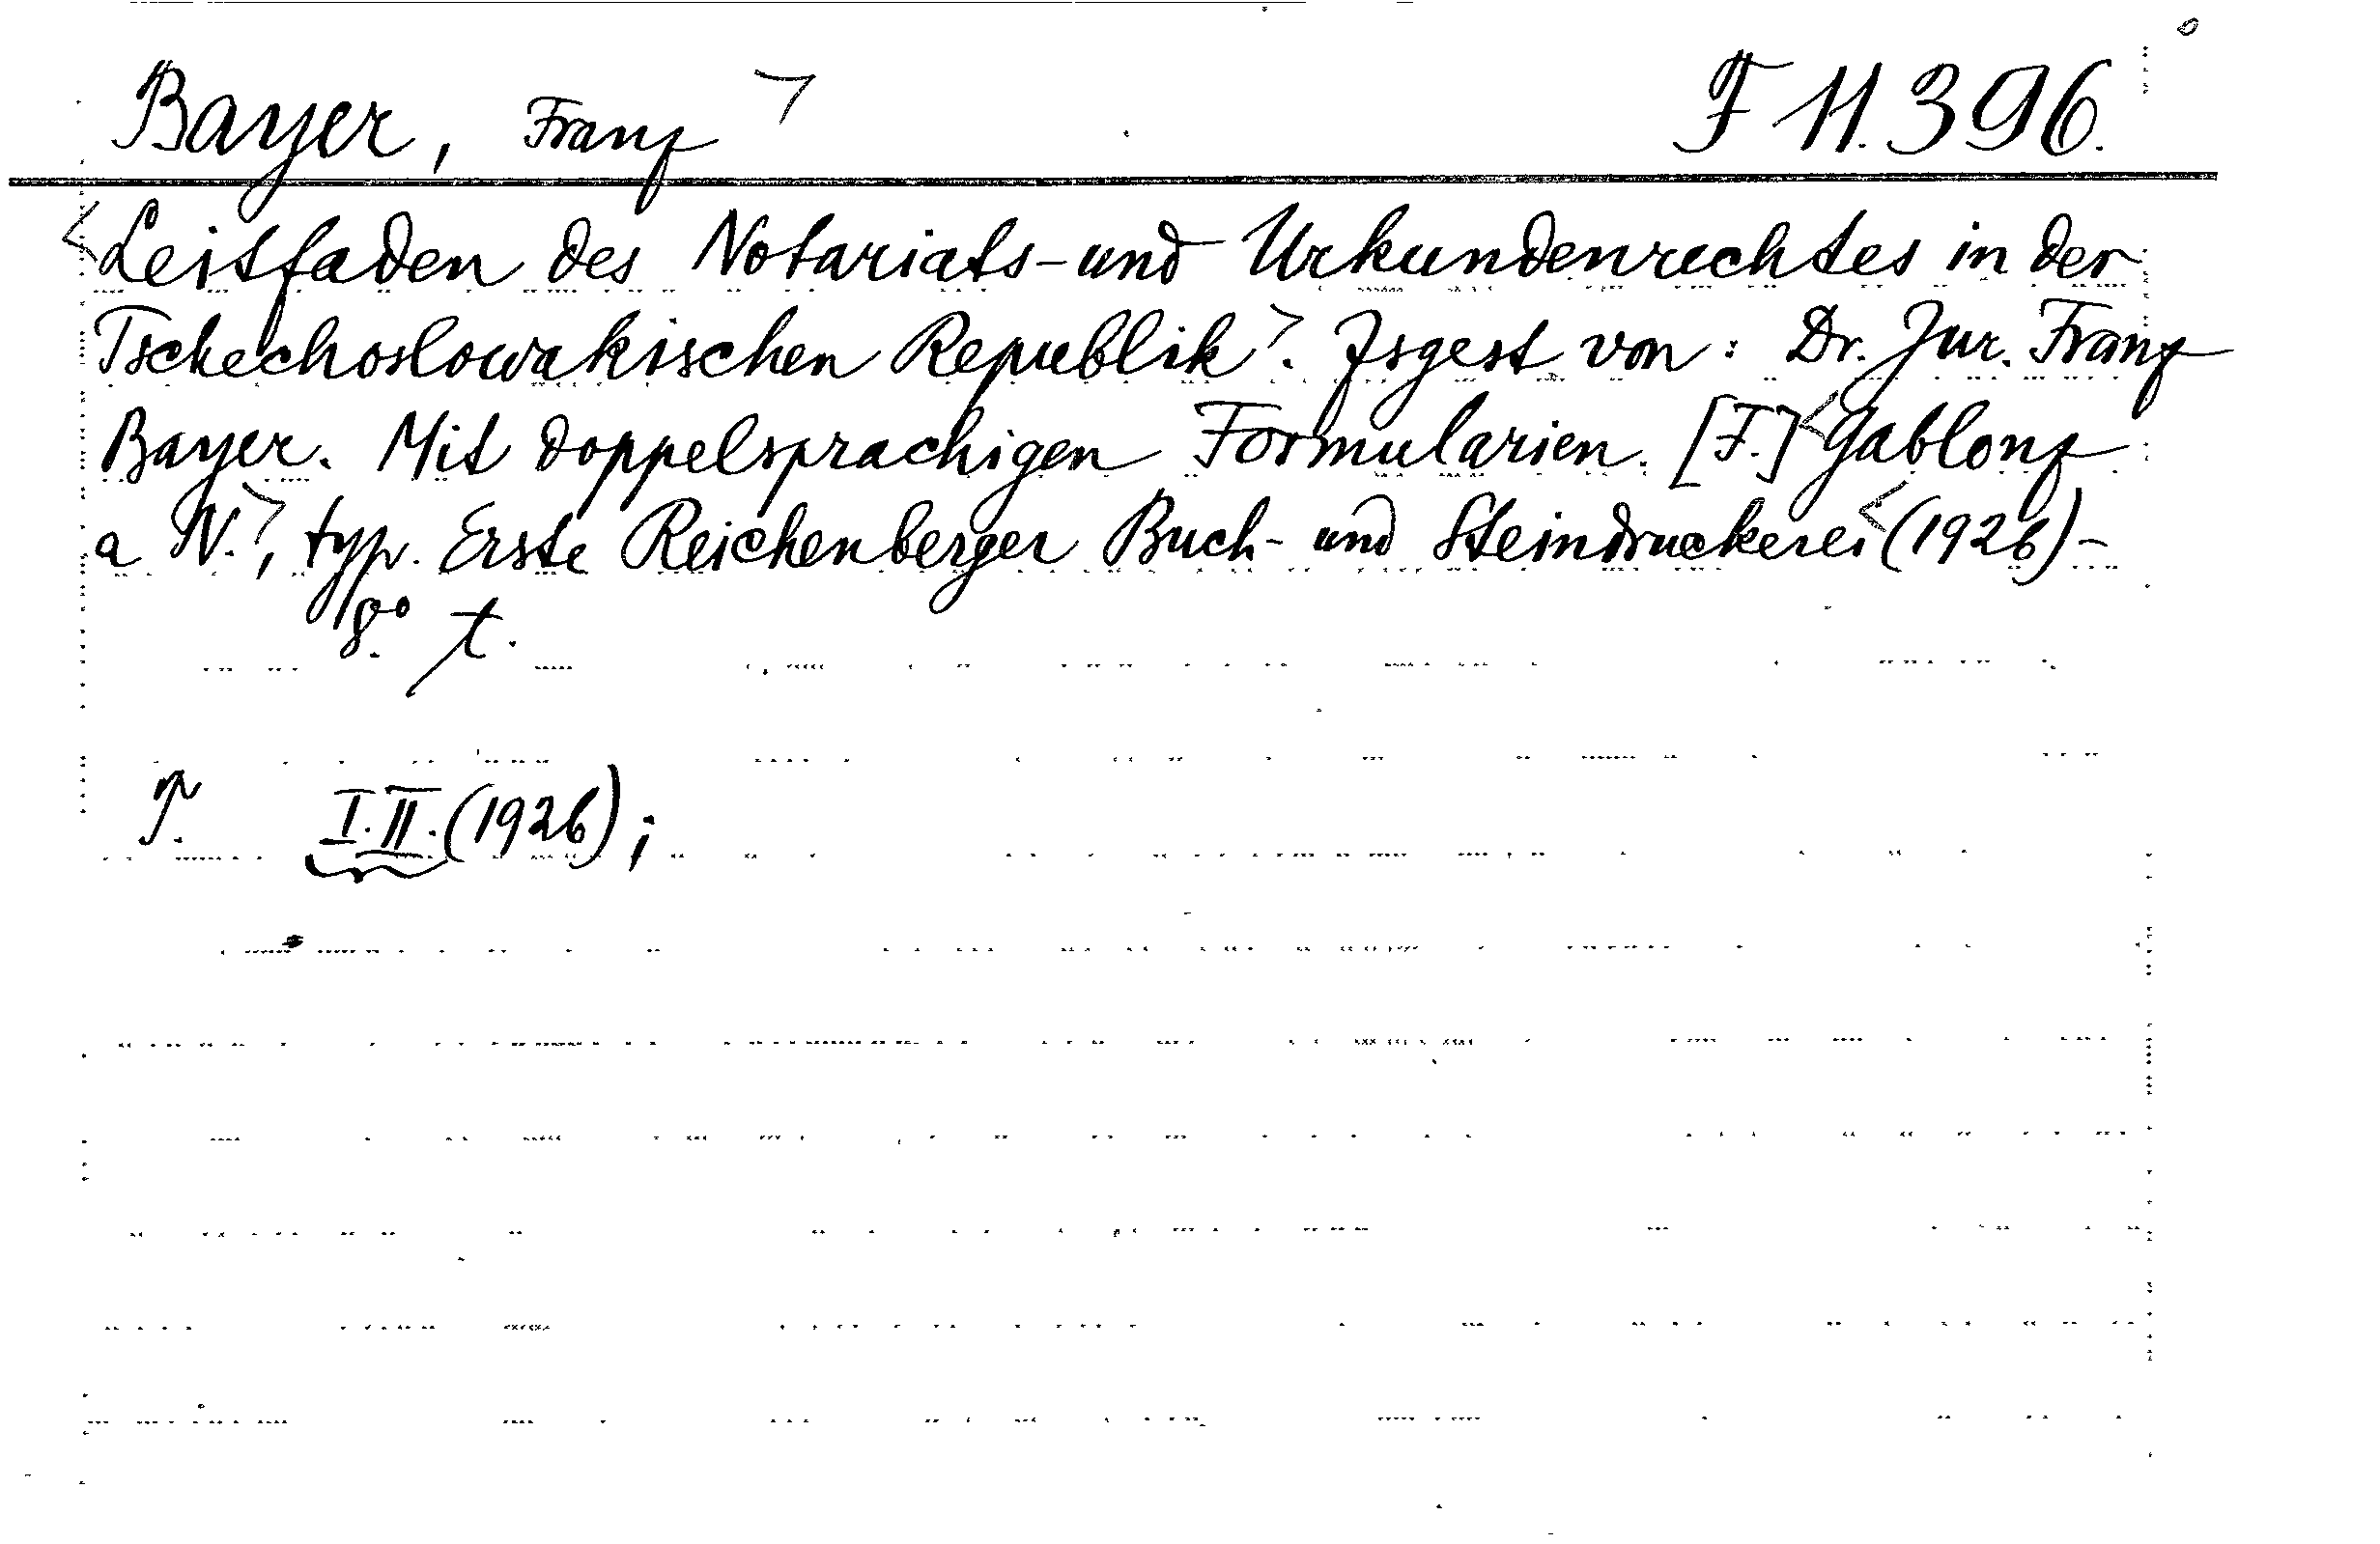 Bayer, Franz > F 11.396.
<Leitfaden des Notariats- und Urkundenrechtes in der
Tschechoslowakischen Republik>. Zsgest. von: Dr. Jur. Franz
Bayer. Mit doppelsprachigen Formularien. [F.] <Gablonz
a N.>, typ. Erste Reichenberger Buch- und Steindruckerei <(1926)-
8.° t.
P. I.II. (1926);